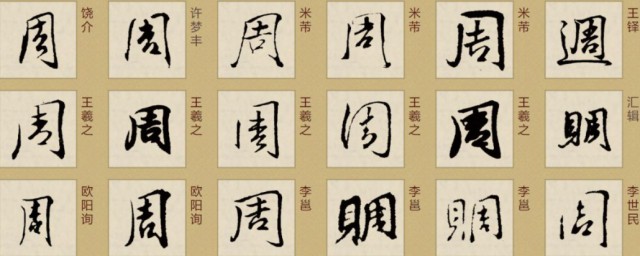 周
饶介
周
许梦丰
周
米芾
周
米芾
周
米芾
週
王铎
周
王羲之
周
王羲之
周
王羲之
周
王羲之
周
王羲之
賙
汇辑
周
欧阳询
周
欧阳询
周
李邕
賙
李邕
賙
李邕
周
李世民